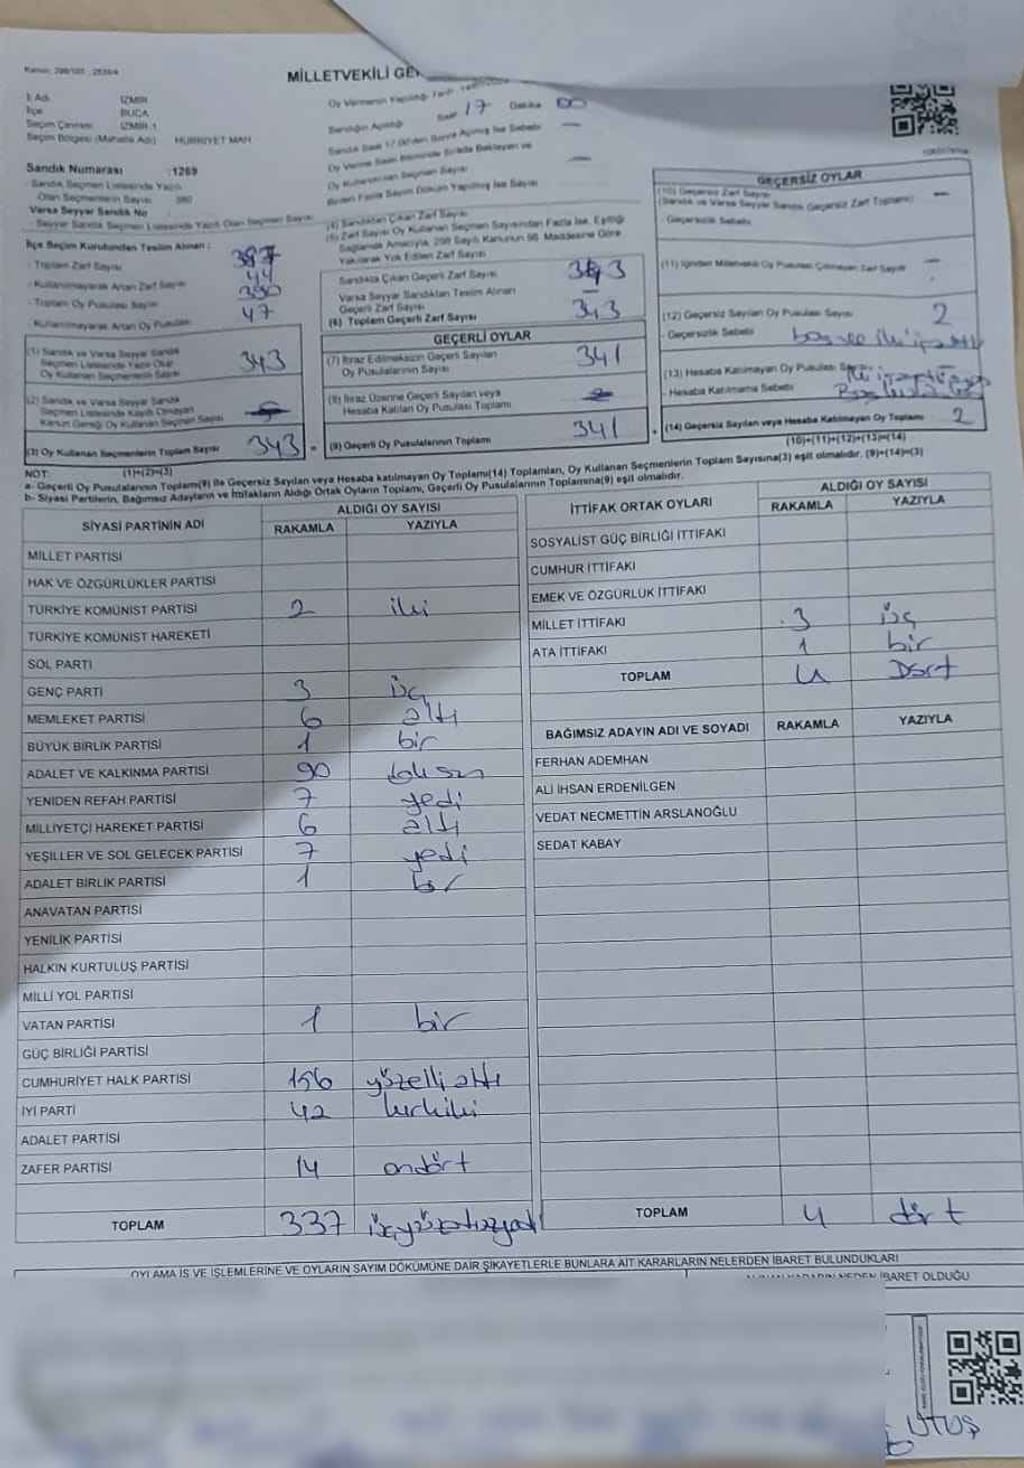 MİLLETVEKİLİ GE
İl Adı İZMİR
İlçe BUCA
Seçim Çevresi İZMİR-1
Seçim Bölgesi (Mahalle Adı) HÜRRİYET MAH
Sandık Numarası :1269
Sandık Seçmen Listesinde Yazılı
Olan Seçmenlerin Sayısı
Varsa Seyyar Sandık No
Seyyar Sandık Seçmen Listesinde Yazılı Olan Seçmen Sayısı
Oy Vermenin Yapıldığı Tarih
Sandığın Açıldığı Saat 17 Dakika 00
Sandık Saat 17.00'den Sonra Açılmış İse Sebebi —
İlçe Seçim Kurulundan Teslim Alınan :
- Toplam Zarf Sayısı
- Kullanılmayarak Artan Zarf Sayısı 44
- Toplam Oy Pusulası Sayısı
- Kullanılmayarak Artan Oy Pusulası 47
(1) Sandık ve Varsa Seyyar Sandık
Seçmen Listesinde Yazılı Olup
Oy Kullanan Seçmenlerin Sayısı 343
(2) Sandık ve Varsa Seyyar Sandık
Seçmen Listesinde Kayıtlı Olmayan
Kanun Gereği Oy Kullanan Seçmen Sayısı
(3) Oy Kullanan Seçmenlerin Toplam Sayısı 343
(1)+(2)=(3)
(4) Sandıktan Çıkan Zarf Sayısı
(5) Zarf Sayısı Oy Kullanan Seçmen Sayısından Fazla İse, Eşitliği
Sağlamak Amacıyla, 298 Sayılı Kanunun 98. Maddesine Göre
Yakılarak Yok Edilen Zarf Sayısı
Sandıkta Çıkan Geçerli Zarf Sayısı 343
Varsa Seyyar Sandıktan Teslim Alınan
Geçerli Zarf Sayısı —
(6) Toplam Geçerli Zarf Sayısı 343
GEÇERLİ OYLAR
(7) İtiraz Edilmeksizin Geçerli Sayılan
Oy Pusulalarının Sayısı 341
(8) İtiraz Üzerine Geçerli Sayılan veya
Hesaba Katılan Oy Pusulası Toplamı
(9) Geçerli Oy Pusulalarının Toplamı 341
GEÇERSİZ OYLAR
(10) Geçersiz Zarf Sayısı
(Sandık ve Varsa Seyyar Sandık Geçersiz Zarf Toplamı) —
- Geçersizlik Sebebi
(12) Geçersiz Sayılan Oy Pusulası Sayısı 2
- Geçersizlik Sebebi
(13) Hesaba Katılmayan Oy Pusulası Sayısı
- Hesaba Katılmama Sebebi
(14) Geçersiz Sayılan veya Hesaba Katılmayan Oy Toplamı 2
(10)+(11)+(12)+(13)=(14)
NOT:
a- Geçerli Oy Pusulalarının Toplamı(9) ile Geçersiz Sayılan veya Hesaba katılmayan Oy Toplamı(14) Toplamları, Oy Kullanan Seçmenlerin Toplam Sayısına(3) eşit olmalıdır. (9)+(14)=(3)
b- Siyasi Partilerin, Bağımsız Adayların ve İttifakların Aldığı Ortak Oyların Toplamı, Geçerli Oy Pusulalarının Toplamına(9) eşit olmalıdır.
SİYASİ PARTİNİN ADI ALDIĞI OY SAYISI
RAKAMLA YAZIYLA
MİLLET PARTİSİ
HAK VE ÖZGÜRLÜKLER PARTİSİ
TÜRKİYE KOMÜNİST PARTİSİ 2 iki
TÜRKİYE KOMÜNİST HAREKETİ
SOL PARTİ
GENÇ PARTİ 3 üç
MEMLEKET PARTİSİ 6 altı
BÜYÜK BİRLİK PARTİSİ 1 bir
ADALET VE KALKINMA PARTİSİ 90 doksan
YENİDEN REFAH PARTİSİ 7 yedi
MİLLİYETÇİ HAREKET PARTİSİ 6 altı
YEŞİLLER VE SOL GELECEK PARTİSİ 7 yedi
ADALET BİRLİK PARTİSİ 1 bir
ANAVATAN PARTİSİ
YENİLİK PARTİSİ
HALKIN KURTULUŞ PARTİSİ
MİLLİ YOL PARTİSİ
VATAN PARTİSİ 1 bir
GÜÇ BİRLİĞİ PARTİSİ
CUMHURİYET HALK PARTİSİ 156 yüzelli altı
İYİ PARTİ 42 kırkiki
ADALET PARTİSİ
ZAFER PARTİSİ 14 ondört
TOPLAM 337 üçyüzotuzyedi
İTTİFAK ORTAK OYLARI ALDIĞI OY SAYISI
RAKAMLA YAZIYLA
SOSYALİST GÜÇ BİRLİĞİ İTTİFAKI
CUMHUR İTTİFAKI
EMEK VE ÖZGÜRLÜK İTTİFAKI
MİLLET İTTİFAKI 3 üç
ATA İTTİFAKI 1 bir
TOPLAM 4 Dört
BAĞIMSIZ ADAYIN ADI VE SOYADI RAKAMLA YAZIYLA
FERHAN ADEMHAN
ALİ İHSAN ERDENİLGEN
VEDAT NECMETTİN ARSLANOĞLU
SEDAT KABAY
TOPLAM 4 dört
OYLAMA İŞ VE İŞLEMLERİNE VE OYLARIN SAYIM DÖKÜMÜNE DAİR ŞİKAYETLERLE BUNLARA AİT KARARLARIN NELERDEN İBARET BULUNDUKLARI
İBARET OLDUĞU